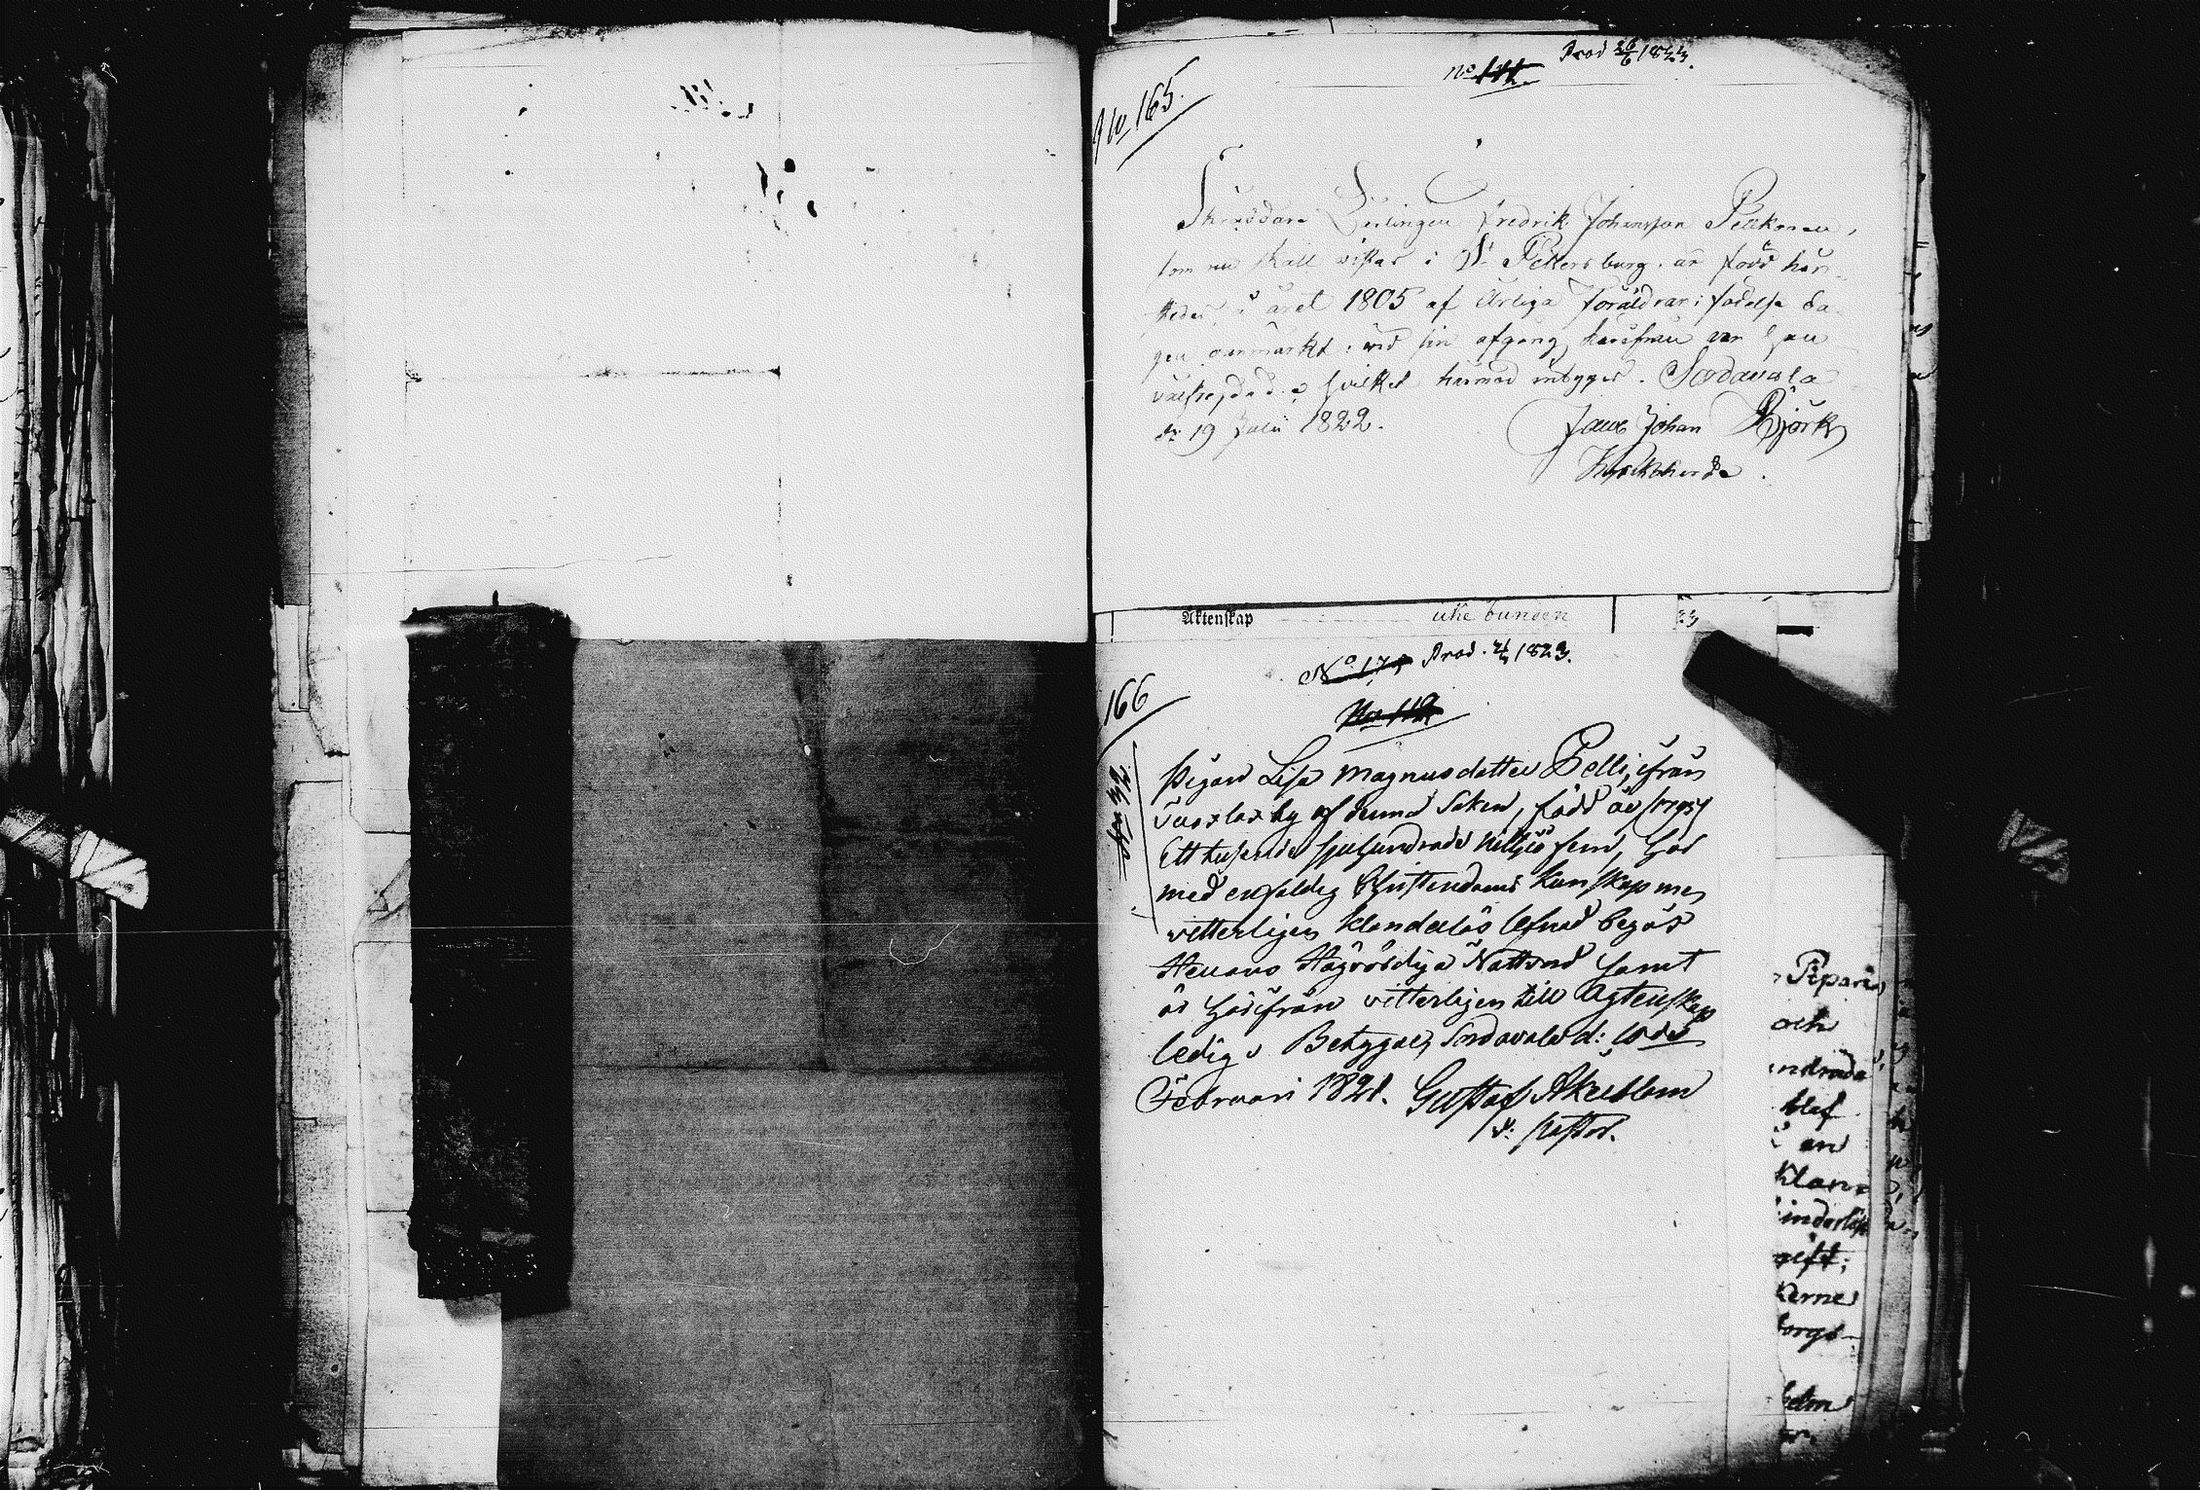 No 165
Prod 26/6 1823.
Skräddare Lärlingen Fredrik Johansson Pelkonen,
som nu skall vistas i St Petersburg, är född här-
städes i året 1805 af ärliga föräldrar; födelse da-
gen oanmärkt; vid sin afgång härifrån var han
välfrejdad; hvilket härmed intygas. Sordavala
d. 19 Julii 1822.
Johan Björk
Kyrkoherde.
Äktenskap icke bunden
No 17 Prod. 1823.
166
Pigan Lisa Magnusdotter Pelli, ifrån
by af denna Soken, född år 1795
Ett tusende sjuhundrade nittio fem, har
med enfaldig Christendoms kunskap men
vetterligen klanderlös lefnad begåt
Herrans Högvördiga Nattvard samt
är härifrån vitterligen till Ägtenskap
ledig; Betygar, Sordavala d: 10de
Februari 1821. Gustaf Åkerblom
v: Pastor.
och
an